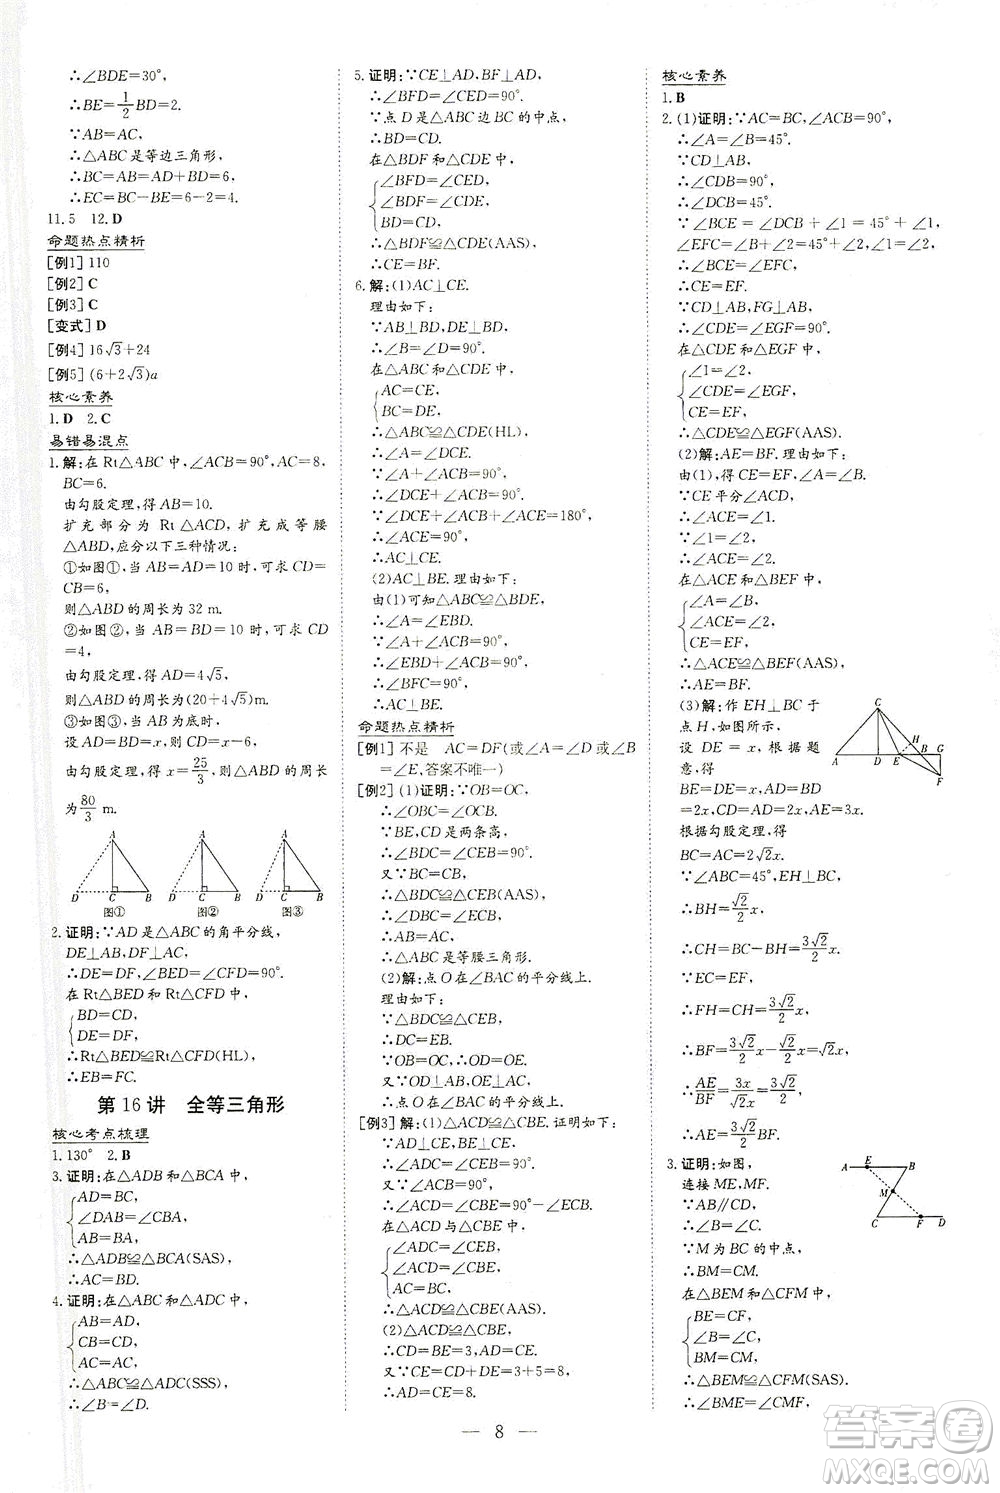 ∴∠BDE=30°,
∴BE=1/2BD=2.
∵AB=AC,
∴△ABC是等边三角形,
∴BC=AB=AD+BD=6.
∴EC=BC-BE=6-2=4.
11.5 12.D
命题热点精析
[例1] 110
[例2] C
[例3] C
[变式] D
[例4] 16√3+24
[例5] (6+2√3)a
核心素养
1.D 2.C
易错易混点
1.解:在Rt△ABC中,∠ACB=90°,AC=8,
BC=6.
由勾股定理,得AB=10.
扩充部分为Rt△ACD,扩充成等腰
△ABD,应分以下三种情况:
①如图①,当AB=AD=10时,可求CD=
CB=6,
则△ABD的周长为32 m.
②如图②,当AB=BD=10时,可求CD
=4,
由勾股定理,得AD=4√5,
则△ABD的周长为(20+4√5)m.
③如图③,当AB为底时,
设AD=BD=x,则CD=x-6,
由勾股定理,得x=25/3,则△ABD的周长
为80/3 m.
A A A
D C B D C B D C B
图① 图② 图③
2.证明:∵AD是△ABC的角平分线,
DE⊥AB,DF⊥AC,
∴DE=DF,∠BED=∠CFD=90°.
在Rt△BED和Rt△CFD中,
{BD=CD,
DE=DF,
∴Rt△BED≌Rt△CFD(HL),
∴EB=FC.
第16讲 全等三角形
核心考点梳理
1.130° 2.B
3.证明:在△ADB和△BCA中,
{AD=BC,
∠DAB=∠CBA,
AB=BA,
∴△ADB≌△BCA(SAS),
∴AC=BD.
4.证明:在△ABC和△ADC中,
{AB=AD,
CB=CD,
AC=AC,
∴△ABC≌△ADC(SSS),
∴∠B=∠D.
5.证明:∵CE⊥AD,BF⊥AD,
∴∠BFD=∠CED=90°.
∵点D是△ABC边BC的中点,
∴BD=CD.
在△BDF和△CDE中,
{∠BFD=∠CED,
∠BDF=∠CDE,
BD=CD,
∴△BDF≌△CDE(AAS),
∴CE=BF.
6.解:(1)AC⊥CE.
理由如下:
∵AB⊥BD,DE⊥BD,
∴∠B=∠D=90°.
在△ABC和△CDE中,
{AC=CE,
BC=DE,
∴△ABC≌△CDE(HL),
∴∠A=∠DCE.
∵∠A+∠ACB=90°,
∴∠DCE+∠ACB=90°.
∵∠DCE+∠ACB+∠ACE=180°,
∴∠ACE=90°.
∴AC⊥CE.
(2)AC⊥BE.理由如下:
由(1)可知△ABC≌△BDE,
∴∠A=∠EBD.
∵∠A+∠ACB=90°,
∴∠EBD+∠ACB=90°,
∴∠BFC=90°.
∴AC⊥BE.
命题热点精析
[例1] 不是 AC=DF(或∠A=∠D或∠B
=∠E,答案不唯一)
[例2] (1)证明:∵OB=OC,
∴∠OBC=∠OCB.
∵BE,CD是两条高,
∴∠BDC=∠CEB=90°.
又∵BC=CB,
∴△BDC≌△CEB(AAS),
∴∠DBC=∠ECB,
∴AB=AC,
∴△ABC是等腰三角形.
(2)解:点O在∠BAC的平分线上.
理由如下:
∵△BDC≌△CEB,
∴DC=EB.
∵OB=OC,∴OD=OE.
又∵OD⊥AB,OE⊥AC,
∴点O在∠BAC的平分线上.
[例3] 解:(1)△ACD≌△CBE.证明如下:
∵AD⊥CE,BE⊥CE,
∴∠ADC=∠E=90°.
∵∠ACB=90°,
∴∠ACD=∠CBE=90°-∠ECB.
在△ACD与△CBE中,
{∠ADC=∠CEB,
∠ACD=∠CBE,
AC=BC,
∴△ACD≌△CBE(AAS).
(2)∵△ACD≌△CBE,
∴CD=BE=3,AD=CE.
又∵CE=CD+DE=3+5=8,
∴AD=CE=8.
核心素养
1.B
2.(1)证明:∵AC=BC,∠ACB=90°,
∴∠A=∠B=45°.
∵CD⊥AB,
∴∠CDB=90°,
∴∠DCB=45°.
∵∠BCE=∠DCB+∠1=45°+∠1,
∠EFC=∠B+∠2=45°+∠2,∠1=∠2,
∴∠BCE=∠EFC,
∴CE=EF.
∵CD⊥AB,FG⊥AB,
∴∠CDE=∠EGF=90°.
在△CDE和△EGF中,
{∠1=∠2,
∠CDE=∠EGF,
CE=EF,
∴△CDE≌△EGF(AAS).
(2)解:AE=BF.理由如下:
由(1),得CE=EF,∠A=∠B.
∵CE平分∠ACD,
∴∠ACE=∠1.
∵∠1=∠2,
∴∠ACE=∠2.
在△ACE和△BEF中,
{∠A=∠B,
∠ACE=∠2,
CE=EF,
∴△ACE≌△BEF(AAS),
∴AE=BF.
(3)解:作EH⊥BC于
点H,如图所示,
设DE=x,根据题
意,得
BE=DE=x,AD=CD=BD
=2x,CD=AD=2x,AE=3x.
根据勾股定理,得
BC=AC=2√2x.
∵∠ABC=45°,EH⊥BC,
∴BH=√2/2x,
∴CH=BC-BH=3√2/2x.
∵EC=EF,
∴FH=CH=3√2/2x,
∴BF=3√2/2x-√2/2x=√2x,
∴AE/BF=3x/√2x=3√2/2,
∴AE=3√2/2BF.
C
H
A D E B G
F
3.证明:如图,
连接ME,MF.
∵AB∥CD,
∴∠B=∠C.
∵M为BC的中点,
∴BM=CM.
在△BEM和△CFM中,
{BE=CF,
∠B=∠C,
BM=CM,
∴△BEM≌△CFM(SAS),
∴∠BME=∠CMF.
A E B
M
C F D
— 8 —
答案卷
MXQE.COM